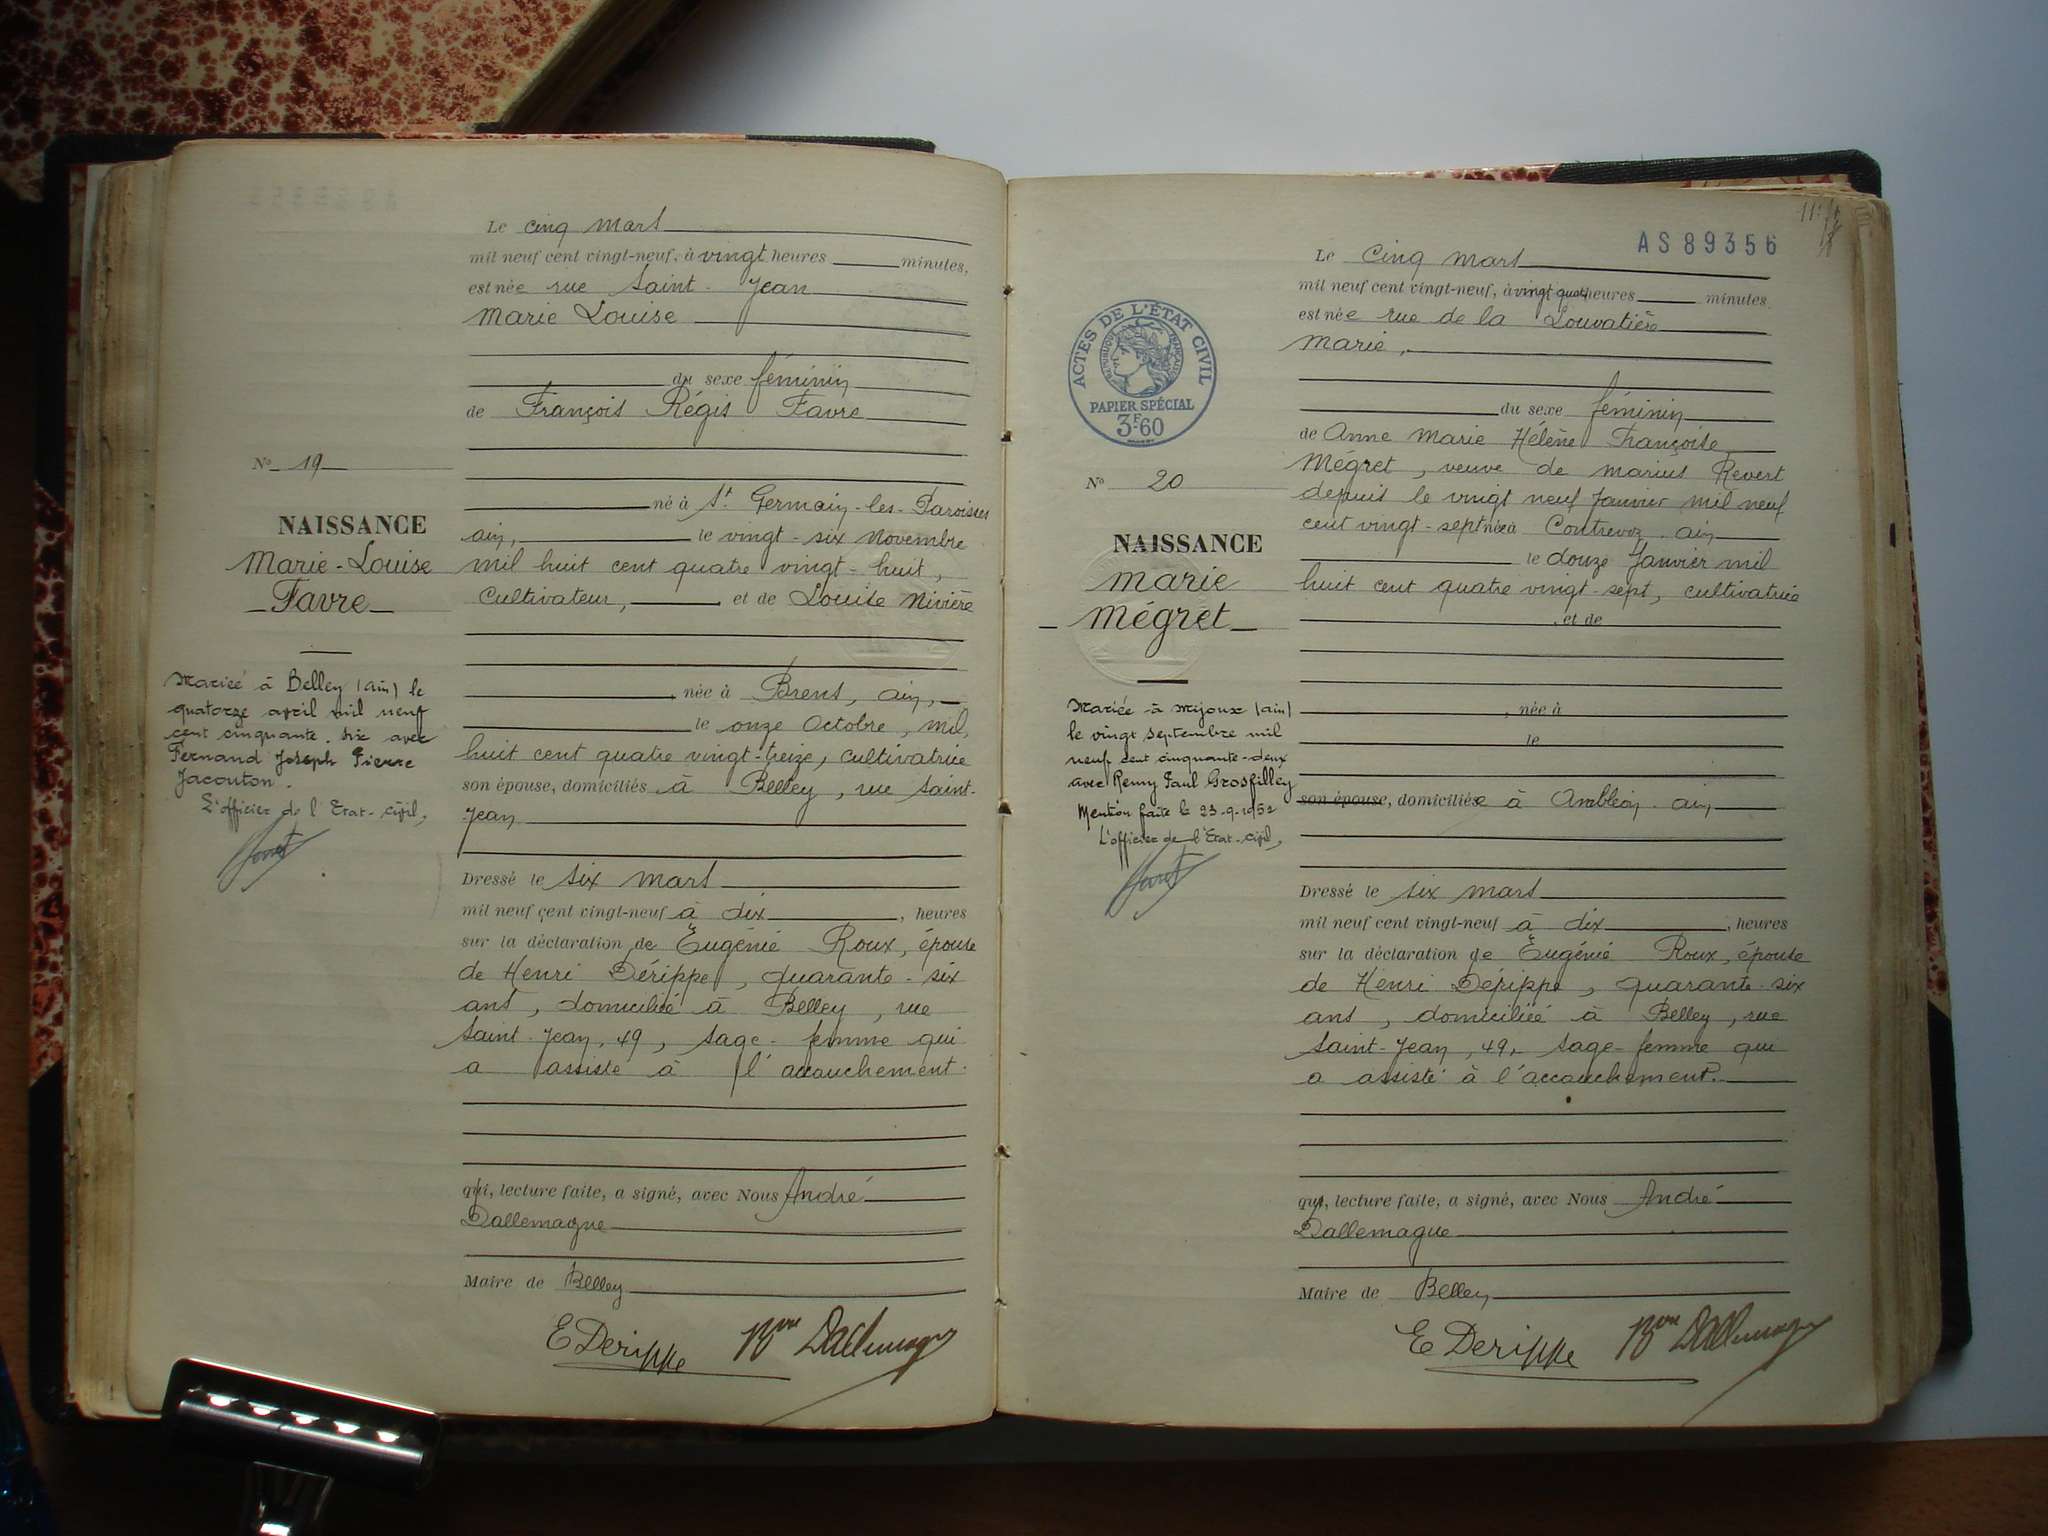 Le cinq mars
mil neuf cent vingt-neuf, à vingt heures minutes,
est née rue Saint-Jean
Marie Louise
du sexe féminin
de François Régis Favre
né à St Germain-les-Paroisses
ain, le vingt-six Novembre
mil huit cent quatre vingt-huit,
cultivateur, et de Louise Nivière
née à Brens, ain,
le onze Octobre, mil
huit cent quatre vingt-treize, cultivatrice
son épouse, domiciliés à Belley, rue Saint-
Jean
Dressé le six mars
mil neuf cent vingt-neuf à dix, heures
sur la déclaration de Eugénie Roux, épouse
de Henri Dérippe, quarante-six
ans, domiciliée à Belley, rue
Saint-Jean, 49, sage-femme qui
a assisté à l'accouchement.
qui, lecture faite, a signé, avec Nous André
Dallemagne
Maire de Belley
E Derippe Bon Dallemagne
No 19
NAISSANCE
Marie-Louise
Favre
Mariée à Belley (ain) le
quatorze avril mil neuf
cent cinquante-six avec
Fernand Joseph Pierre
Jacouton.
L'officier de l'Etat-civil,
AS89356
Le cinq mars
mil neuf cent vingt-neuf, à vingt quatre heures minutes
est née rue de la Louvatière
Marie,
du sexe féminin
de Anne Marie Hélène Françoise
Mégret, veuve de Marius Revert
depuis le vingt neuf Janvier mil neuf
cent vingt-sept née à Contrevoz, ain
le douze Janvier mil
huit cent quatre vingt-sept, cultivatrice
, et de
, née à
le
son épouse, domiciliée à Ambléon, ain
Dressé le six mars
mil neuf cent vingt-neuf à dix, heures
sur la déclaration de Eugénie Roux, épouse
de Henri Dérippe, quarante-six
ans, domiciliée à Belley, rue
Saint-Jean, 49, sage-femme qui
a assisté à l'accouchement.
qui, lecture faite, a signé, avec Nous André
Dallemagne
Maire de Belley
E Derippe Bon Dallemagne
ACTES DE L'ÉTAT CIVIL
RÉPUBLIQUE FRANÇAISE
PAPIER SPÉCIAL
3F60
No 20
NAISSANCE
Marie
Mégret
Mariée à Mijoux (ain)
le vingt septembre mil
neuf cent cinquante-deux
avec Remy Paul Grosfilley
Mention faite le 23-9-1952
L'officier de l'Etat-civil,